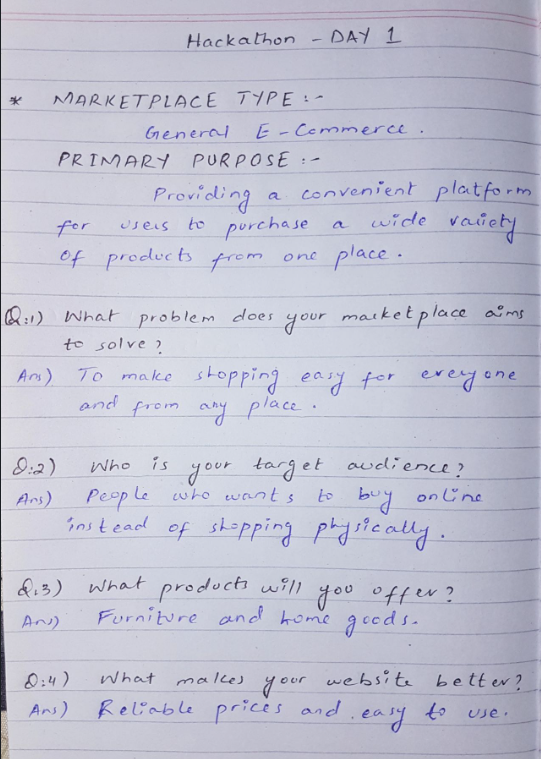 Hackathon - DAY 1
* MARKETPLACE TYPE :-
General E-Commerce.
PRIMARY PURPOSE :-
Providing a convenient platform
for users to purchase a wide variety
of products from one place.
Q:1) What problem does your marketplace aims
to solve?
Ans) To make shopping easy for everyone
and from any place.
Q:2) Who is your target audience?
Ans) People who wants to buy online
instead of shopping physically.
Q.3) What products will you offer?
Ans) Furniture and home goods.
Q:4) What makes your website better?
Ans) Reliable prices and easy to use.